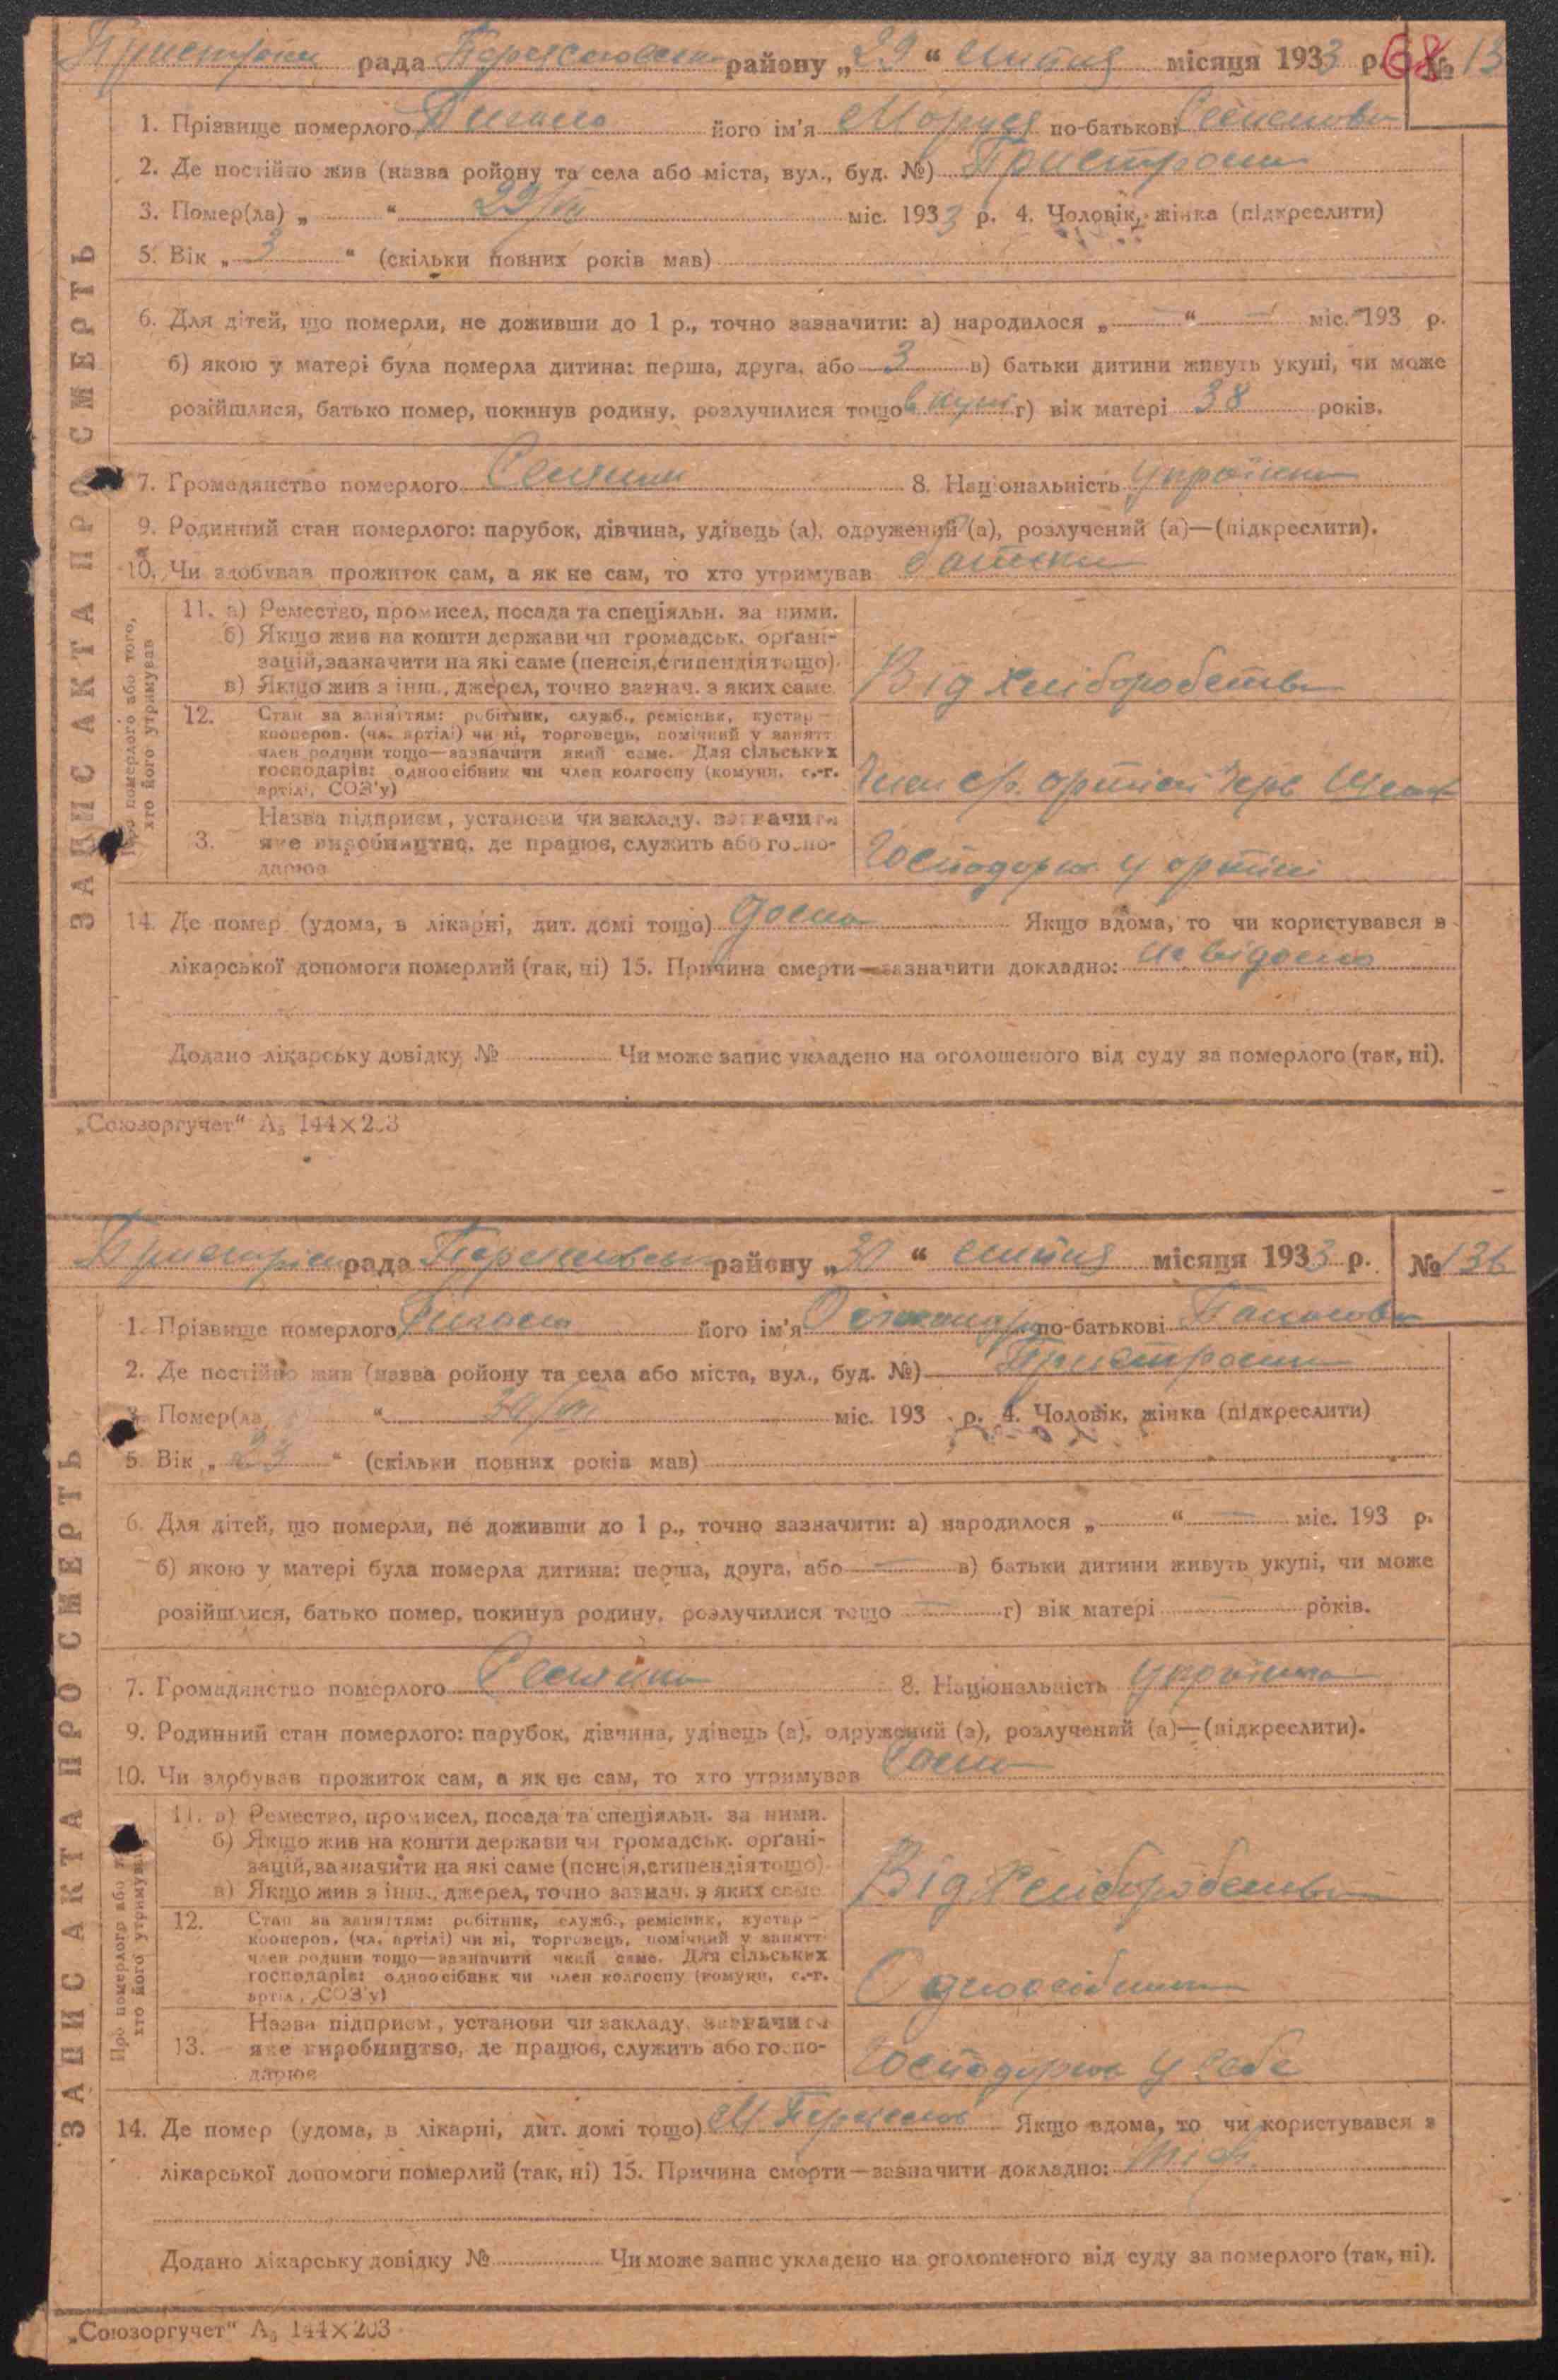 Пристроми рада Переяславськ району „29“ липня місяця 1933 р. 68 № 13
1. Прізвище померлого його ім'я Маруся по-батькові Семенова
2. Де постійно жив (назва ройону та села або міста, вул., буд. №) Пристроми
3. Помер(ла) „ “ 29/VII міс. 1933 р. 4. Чоловік, жінка (підкреслити)
5. Вік „ 3 “ (скільки повних років мав)
6. Для дітей, що померли, не доживши до 1 р., точно зазначити: а) народилося „ — “ — міс. 193 р.
б) якою у матері була померла дитина: перша, друга, або 3 в) батьки дитини живуть укупі, чи може
розійшлися, батько помер, покинув родину, розлучилися тощо вкупі г) вік матері 38 років.
7. Громадянство померлого Селянин 8. Національність українка
9. Родинний стан померлого: парубок, дівчина, удівець (а), одружений (а), розлучений (а)—(підкреслити).
10. Чи здобував прожиток сам, а як не сам, то хто утримував батьки
ЗАПИС АКТА ПРО СМЕРТЬ
Про померлого або того, хто його утримував
11. а) Ремество, промисел, посада та спеціяльн. за ними.
б) Якщо жив на кошти держави чи громадськ. органі-
зацій, зазначити на які саме (пенсія, стипендія тощо)
в) Якщо жив з інш., джерел, точно зазнач. з яких саме
Від хліборобства
12. Стан за заняттям: робітник, служб., ремісник, кустар —
кооперов. (чл. артілі) чи ні, торговець, помічний у занятт
член родини тощо—зазначити який саме. Для сільських
господарів: одноосібник чи член колгоспу (комуни, с.-г.
артілі, СОЗ'у)
Член с/г. артілі Черв
3. Назва підприєм, установи чи закладу, зазначити
яке виробництво, де працює, служить або госпо-
дарює
Господарює у артілі
14. Де помер (удома, в лікарні, дит. домі тощо) дома Якщо вдома, то чи користувався з
лікарської допомоги померлий (так, ні) 15. Причина смерти—зазначити докладно: не відомо
Додано лікарську довідку № Чи може запис укладено на оголошеного від суду за померлого (так, ні).
„Союзоргучет“ А₅ 144×203
Пристромс рада Переяславськ району „30“ липня місяця 1933 р. № 136
1. Прізвище померлого його ім'я по-батькові Панасова
2. Де постійно жив (назва ройону та села або міста, вул., буд. №) Пристроми
3. Помер(ла “ 30/VII міс. 193 р. 4. Чоловік, жінка (підкреслити)
5. Вік „ 23 “ (скільки повних років мав)
6. Для дітей, що померли, не доживши до 1 р., точно зазначити: а) народилося „ “ — міс. 193 р.
б) якою у матері була померла дитина: перша, друга, або — в) батьки дитини живуть укупі, чи може
розійшлися, батько помер, покинув родину, розлучилися тощо — г) вік матері — років.
7. Громадянство померлого Селянка 8. Національність українка
9. Родинний стан померлого: парубок, дівчина, удівець (а), одружений (а), розлучений (а)—(підкреслити).
10. Чи здобував прожиток сам, а як не сам, то хто утримував Сама
ЗАПИС АКТА ПРО СМЕРТЬ
Про померлого або хто його утримував
11. а) Ремество, промисел, посада та спеціяльн. за ними.
б) Якщо жив на кошти держави чи громадськ. органі-
зацій, зазначити на які саме (пенсія, стипендія тощо)
в) Якщо жив з інш., джерел, точно зазнач. з яких саме
Від хліборобства
12. Стан за заняттям: робітник, служб., ремісник, кустар —
кооперов. (чл. артілі) чи ні, торговець, помічний у занятт
член родини тощо—зазначити який саме. Для сільських
господарів: одноосібник чи член колгоспу (комуни, с.-г.
артіл., СОЗ'у)
Одноосібник
13. Назва підприєм, установи чи закладу, зазначити
яке виробництво, де працює, служить або госпо-
дарює
Господарює у себе
14. Де помер (удома, в лікарні, дит. домі тощо) м. Переяслов Якщо вдома, то чи користувався з
лікарської допомоги померлий (так, ні) 15. Причина смерти—зазначити докладно: тіф.
Додано лікарську довідку № Чи може запис укладено на оголошеного від суду за померлого (так, ні).
„Союзоргучет“ А₅ 144×203